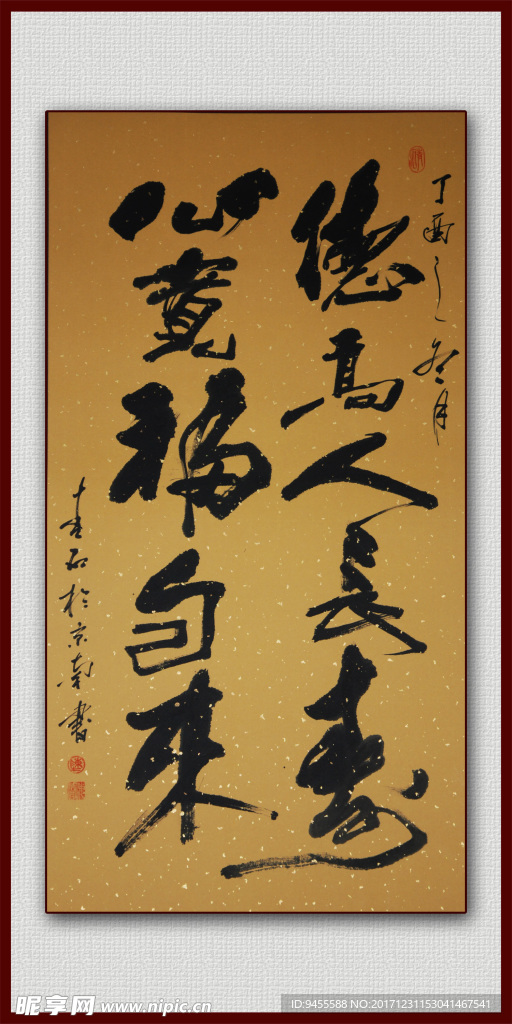 丁酉之冬月
德高人长寿
心宽福自来
于京南書
昵享网 www.nipic.cn
ID:9455588 NO:20171231153041467541